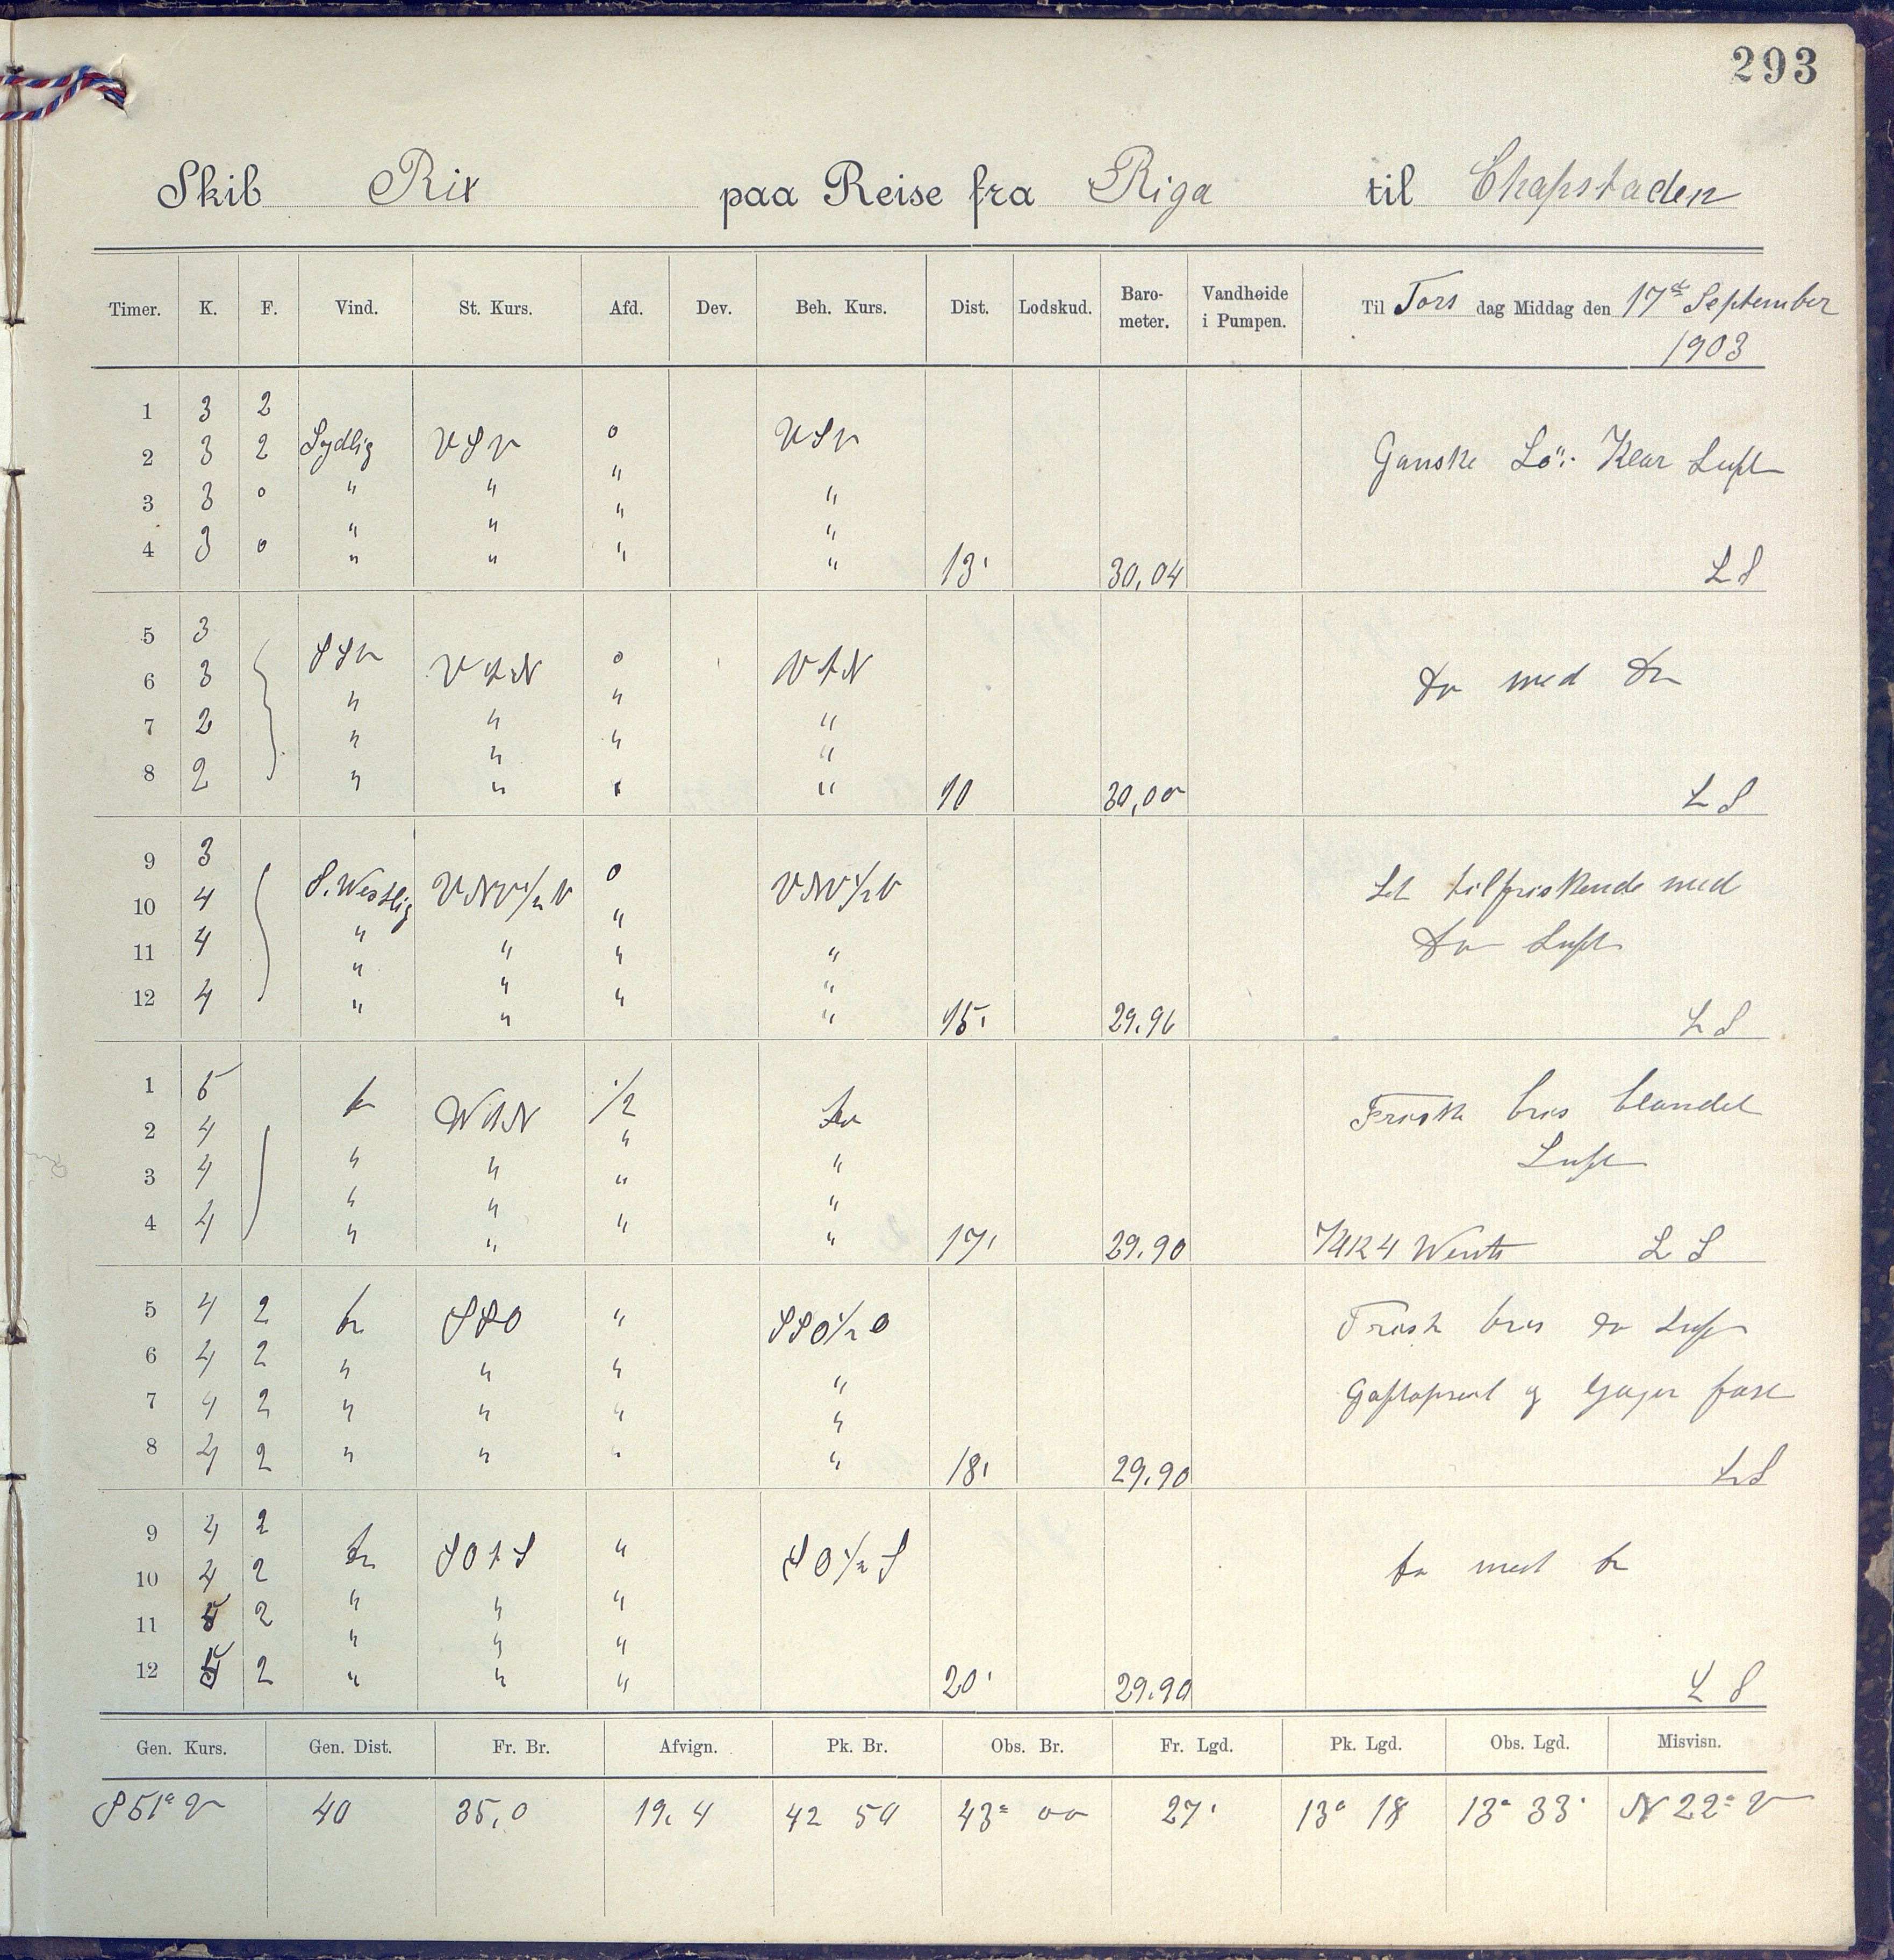 293
Skib Rix paa Reise fra Riga til Chapstaden
Timer. K. F. Vind. St. Kurs. Afd. Dev. Beh. Kurs. Dist. Lodskud. Baro-meter. Vandhøide i Pumpen. Til Tors dag Middag den 17de September
1903
1 3 2
2 3 2 Sydlig VSV 0 VSV Ganske Lö: Klar Luft
3 3 0 " " " "
4 3 0 " " " " 13' 30,04 LS
5 3
6 3 SSV VtN 0 VtN do med do
7 2 " " " "
8 2 " " " " 10 30,00 LS
9 3
10 4 S. Westlig VNV1/2V 0 VNV1/2V Let tilfriskende med
11 4 " " " " do Luft
12 4 " " " " 15' 29.96 LS
1 5 do WtN 1/2 do Frisk bris blandet
2 4 " " " " Luft
3 4 " " " "
4 4 " " " " 17' 29.90 Kl 4 Wendte LS
5 4 2 do SSO " SSO1/2O Frisk bris do Luft
6 4 2 " " " "
7 4 2 " " " " og Jager fast
8 4 2 " " " " 18' 29.90 LS
9 4 2
10 4 2 do SOtS " SO1/2S do med do
11 5 2 " " "
12 5 2 " " " 20' 29.90 LS
Gen. Kurs. Gen. Dist. Fr. Br. Afvign. Pk. Br. Obs. Br. Fr. Lgd. Pk. Lgd. Obs. Lgd. Misvisn.
S51°V 40 35,0 19.4 42 50 43° 00 27' 13° 18 13° 33' N22°V